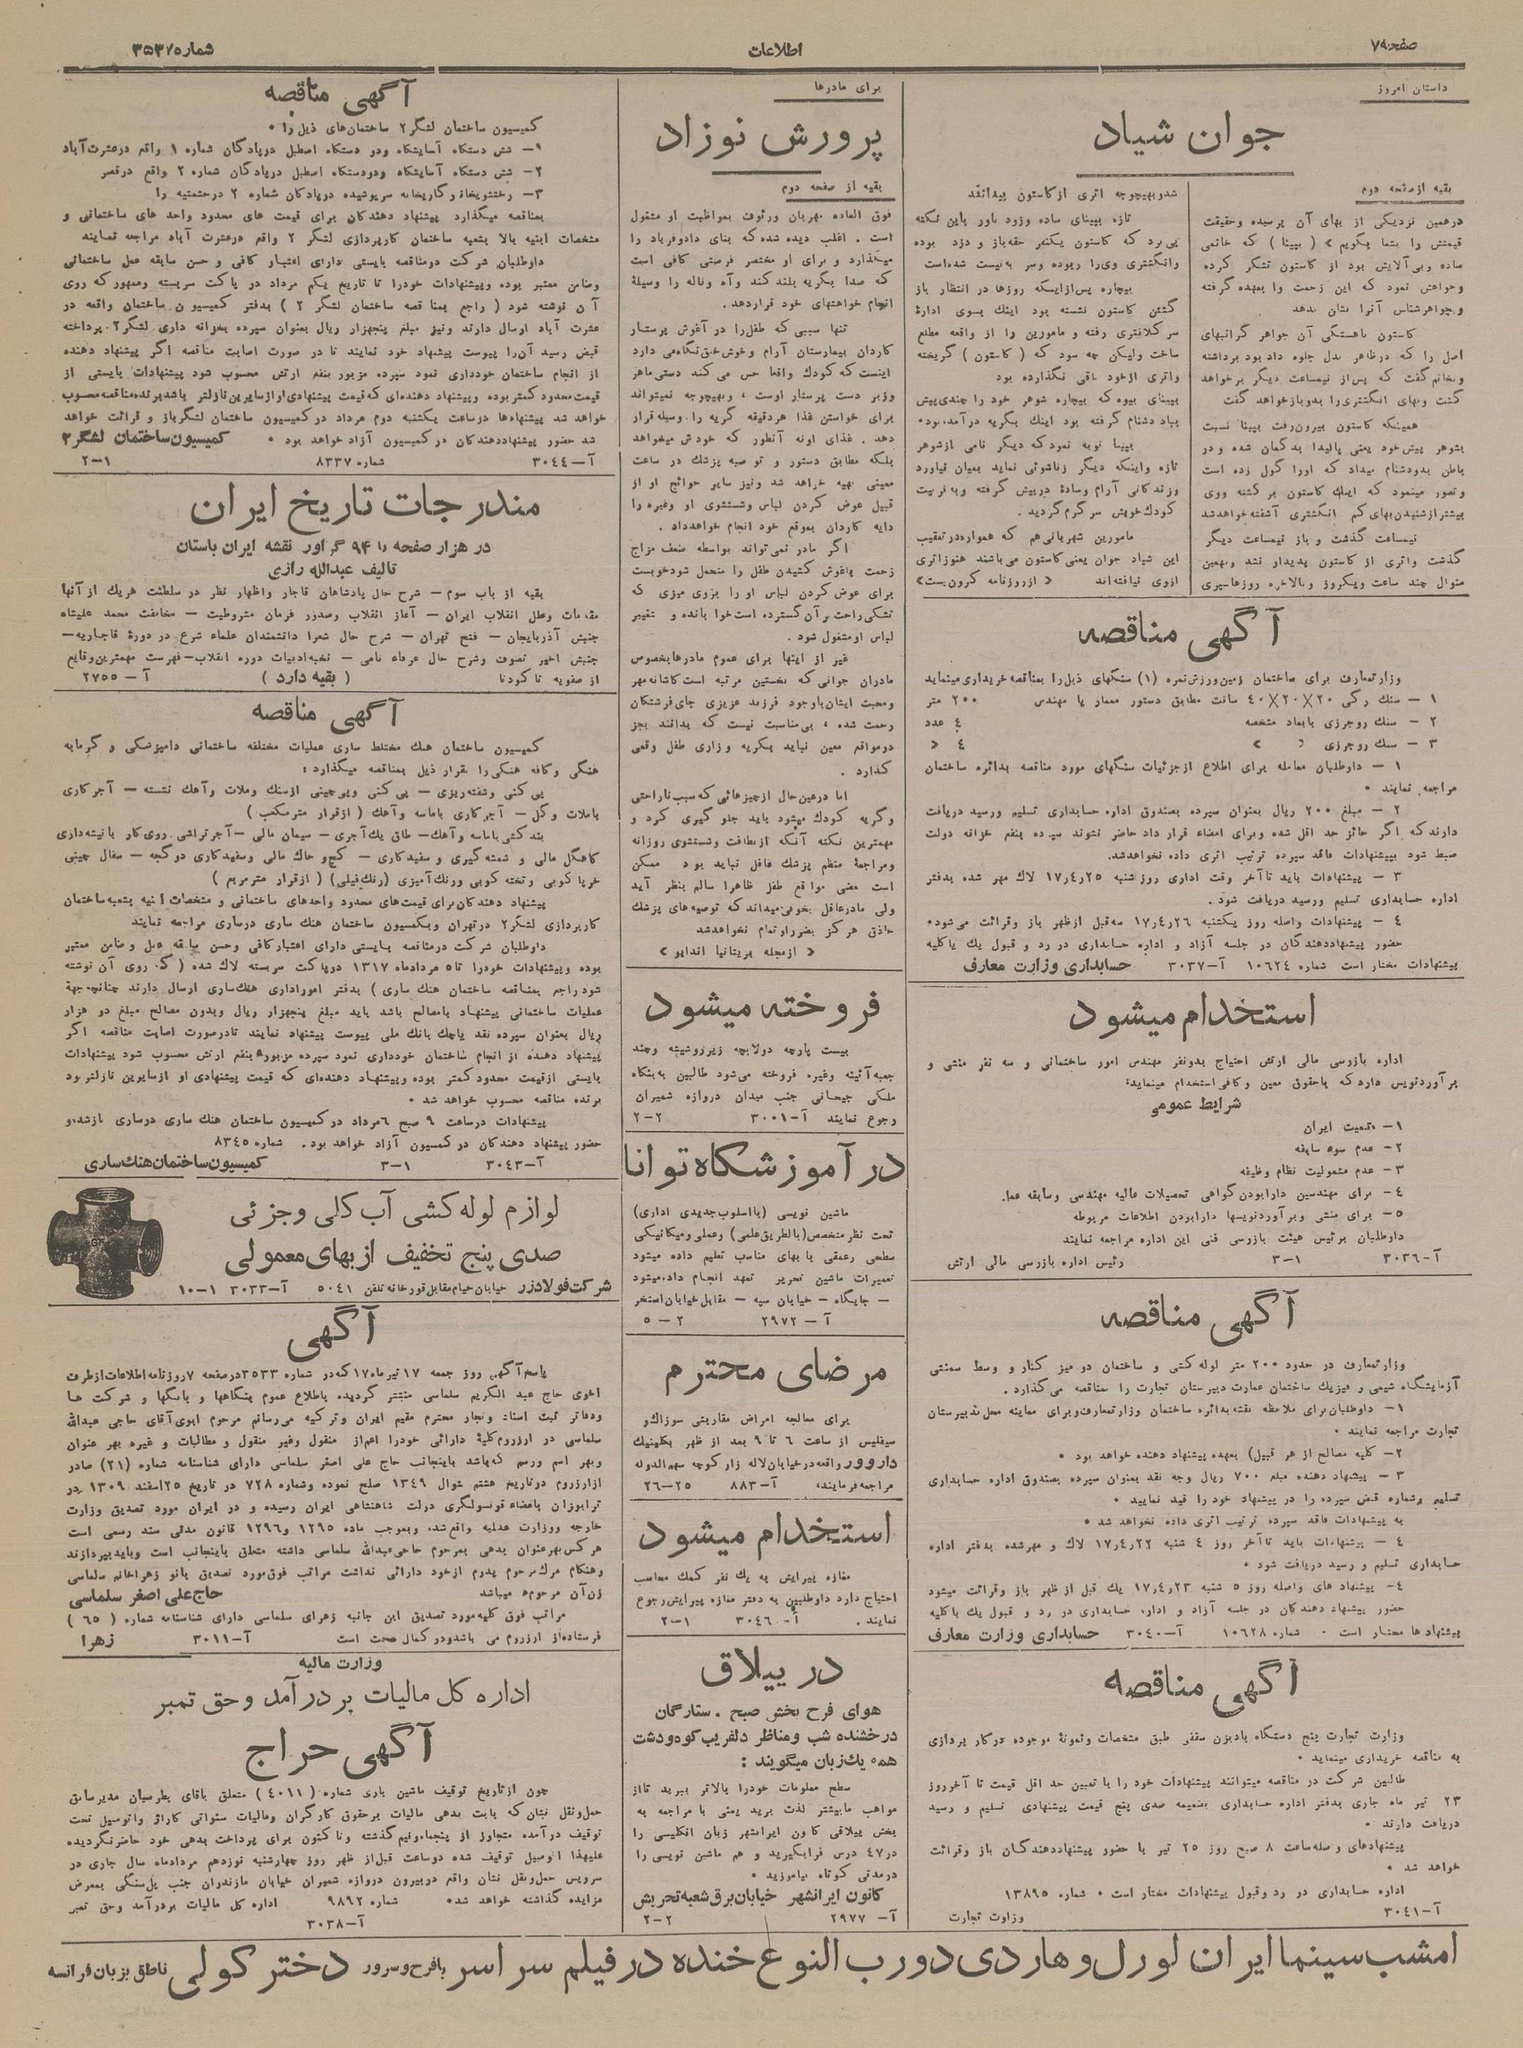 صفحه ۷۹
اطلاعات
شماره ۳۵۳۷
داستان امروز
جوان شیاد
بقیه از صفحه دوم
درهمین نزدیکی از بهای آن پرسیده وحقیقت
قیمتش را بشما بگویم » ( بپینا ) که خانمی
ساده وبی آلایش بود از کاستون تشکر کرده
وخواهش نمود که این زحمت را بعهده گرفته
وجواهرشناس آنرا نشان بدهد
گذشت واثری از کاستون پدیدار نشد وبهمین
منوال چند ساعت ویکروز وبالاخره روزها سپری
شد وبهیچوجه اثری از کاستون پیدا نشد
تازه بپینای ساده وزود باور باین نکته
پی برد که کاستون یکنفر حقه باز و دزد بوده
وانگشتری وی را ربوده وسر به نیست شده است
بیچاره پس از اینکه روزها در انتظار باز
گشتن کاستون نشسته بود اینک بسوی ادارهٔ
سر کلانتری رفته و مامورین را از واقعه مطلع
ساخت ولیکن چه سود که ( کاستون ) گریخته
واثری از خود باقی نگذارده بود
مامورین شهربانی هم که همواره در تعقیب
این شیاد جوان یعنی کاستون می باشند هنوز اثری
ازوی نیافته اند « از روزنامه کرون بست »
آگهی مناقصه
وزارتمعارف برای ساختمان زمین ورزش نمره (۱) سنگهای ذیل را بمناقصه خریداری مینماید
۱ — سنک رگی ۲۰×۲۰×۴۰ سانت مطابق دستور معمار یا مهندس ۲۰۰ متر
۲ — سنک روجرزی بابعاد مشخصه ۴ عدد
۱ — داوطلبان معامله برای اطلاع از جزئیات سنگهای مورد مناقصه بدائره ساختمان
مراجعه نمایند •
۲ — مبلغ ۲۰۰ ریال بعنوان سپرده بصندوق اداره حسابداری تسلیم ورسید دریافت
دارند که اگر حائز حد اقل شده وبرای امضاء قرار داد حاضر نشوند سپرده بنفع خزانه دولت
ضبط شود بپیشنهادات فاقد سپرده ترتیب اثری داده نخواهدشد.
۳ — پیشنهادات باید تا آخر وقت اداری روز شنبه ۱۷٫۴٫۲۵ لاک مهر شده بدفتر
اداره حسابداری تسلیم ورسید دریافت شود .
۴ — پیشنهادات واصله روز یکشنبه ۱۷٫۴٫۲۶ سه قبل از ظهر باز وقرائت می شود•
حضور پیشنهاد دهندگان در جلسه آزاد و اداره حسابداری در رد و قبول یک یا کلیه
پیشنهادات مختار است شماره ۱۰۶۲۴ آ—۳۰۳۷ حسابداری وزارت معارف
استخدام میشود
اداره بازرسی مالی ارتش احتیاج بدونفر مهندس امور ساختمانی و سه نفر منشی و
برآوردنویس دارد که باحقوق معین وکافی استخدام مینماید:
شرایط عمومی
۱— تبعیت ایران
۲— عدم سوء سابقه
۳— عدم مشمولیت نظام وظیفه
۴— برای مهندسین دارابودن گواهی تحصیلات عالیه مهندسی وسابقه عمل.
۵— برای منشی وبرآوردنویسها دارابودن اطلاعات مربوطه
داوطلبان برئیس هیئت بازرسی فنی این اداره مراجعه نمایند
آ—۳۰۳۶ ۱—۳ رئیس اداره بازرسی مالی ارتش
آگهی مناقصه
وزارتمعارف در حدود ۲۰۰ متر لوله کشی و ساختمان دو میز کنار و وسط سمنتی
آزمایشگاه شیمی و فیزیک ساختمان عمارت دبیرستان تجارت را بمناقصه می گذارد.
۱— داوطلبان برای ملاحظه نقشه بدائره ساختمان وزارتمعارف وبرای معاینه محل بدبیرستان
تجارت مراجعه نمایند •
۲— کلیه مصالح از هر قبیل) بعهده پیشنهاد دهنده خواهد بود •
۳ — پیشنهاد دهنده مبلغ ۷۰۰ ریال وجه نقد بعنوان سپرده بصندوق اداره حسابداری
تسلیم وشماره قبض سپرده را در پیشنهاد خود را قید نمایند •
به پیشنهادات فاقد سپرده ترتیب اثری داده نخواهد شد •
۴ — پیشنهادات باید تا آخر روز ۴ شنبه ۱۷٫۴٫۲۲ لاک و مهرشده بدفتر اداره
حسابداری تسلیم و رسید دریافت شود •
۴— پیشنهاد های واصله روز ۵ شنبه ۱۷٫۴٫۲۳ یک قبل از ظهر باز وقرائت میشود
حضور پیشنهاد دهندگان در جلسه آزاد و اداره حسابداری در رد و قبول یک یا کلیه
پیشنهاد ها مختار است • شماره ۱۰۶۲۸ آ—۳۰۴۰ حسابداری وزارت معارف
آگهی مناقصه
وزارت تجارت پنج دستگاه بادبزن سقفی طبق مشخصات ونمونهٔ موجوده در کار پردازی
به مناقصه خریداری مینماید •
طالبین شرکت در مناقصه میتوانند پیشنهادات خود را با تعیین حد اقل قیمت تا آخر روز
۲۳ تیر ماه جاری بدفتر اداره حسابداری بضمیمه صدی پنج قیمت پیشنهادی تسلیم و رسید
دریافت دارند •
پیشنهادهای واصله ساعت ۸ صبح روز ۲۵ تیر با حضور پیشنهاددهندگان باز وقرائت
خواهد شد •
اداره حسابداری در رد وقبول پیشنهادات مختار است • شماره ۱۳۸۹۵
آ—۳۰۴۱ وزارت تجارت
برای مادرها
پرورش نوزاد
بقیه از صفحه دوم
فوق العاده مهربان ورئوف بمواظبت او مشغول
است . اغلب دیده شده که بنای دادوفریاد را
میگذارد و برای او مختصر فرصتی کافی است
که صدا بگریه بلند کند وآه وناله را وسیلهٔ
انجام خواهشهای خود قراردهد.
تنها سببی که طفل را در آغوش پرستار
کاردان بیمارستان آرام وخوش خلق نگاه می دارد
اینست که کودک واقعا حس می کند دستی ماهر
وزبر دست پرستار اوست ، وبهیچوجه نمیتواند
برای خواستن غذا هردقیقه گریه را وسیله قرار
دهد . غذای اونه آنطور که خودش میخواهد
بلکه مطابق دستور و توصیه پزشک در ساعت
معینی تهیه خواهد شد ونیز سایر حوائج او از
قبیل عوض کردن لباس وشستشوی او وغیره را
دایه کاردان بموقع خود انجام خواهدداد.
اگر مادر نمی تواند بواسطه ضعف مزاج
زحمت بآغوش کشیدن طفل را متحمل شود خوبست
برای عوض کردن لباس او را بروی میزی که
تشکی راحت بر آن گسترده است خوابانده و بتغییر
لباس او مشغول شود .
غیر از اینها برای عموم مادرها بخصوص
مادران جوانی که نخستین مرتبه است کاشانه مهر
ومحبت ایشان باوجود فرزند عزیزی جای فرشتگان
رحمت شده ، بی مناسبت نیست که بدانند بجز
درمواقع معین نباید بگریه وزاری طفل وقعی
گذارد .
اما درعین حال از چیزهائی که سبب ناراحتی
وگریه کودک میشود باید جلو گیری کرد و
مهمترین نکته آنکه از نظافت وشستشوی روزانه
ومراجعهٔ منظم پزشک غافل نباید بود ممکن
است بعضی مواقع طفل ظاهرا سالم بنظر آید
ولی مادرعاقل بخوبی میداند که توصیه های پزشک
حاذق هرگز بضرر او تمام نخواهدشد
« از مجله بریتانیا اندایو »
فروخته میشود
بیست پارچه دولابچه زیروشیشه وچند
جعبه آئینه وغیره فروخته می شود طالبین به بنگاه
ملکی جیحانی جنب میدان دروازه شمیران
رجوع نمایند آ—۳۰۰۱ ۲—۲
در آموزشگاه توانا
ماشین نویسی (بااسلوب جدیدی اداری)
تحت نظر متخصص(بالطریق علمی) وعملی ومیکانیکی
سطحی وعمقی با بهای مناسب تعلیم داده میشود
تعمیرات ماشین تحریر تعهد انجام داده میشود
— جایگاه — خیابان سپه — مقابل خیابان استخر
آ — ۲۹۷۲ ۲—۵
مرضای محترم
برای معالجه امراض مقاربتی سوزاک و
سیفلیس از ساعت ۶ تا ۹ بعد از ظهر بکلینیک
داروور واقعه در خیابان لاله زار کوچه سهم الدوله
مراجعه فرمایند. آ—۸۸۳ ۲۵—۲۶
استخدام میشود
مغازه پیرایش به یک نفر کمک محاسب
احتیاج دارد داوطلبین به دفتر مغازه پیرایش رجوع
نمایند . آ—۳۰۴۶ ۱—۲
در ییلاق
هوای فرح بخش صبح . ستارگان
درخشنده شب ومناظر دلفریب کوه ودشت
همه یک زبان میگویند :
سطح معلومات خودرا بالاتر ببرید تا از
مواهب ما بیشتر لذت برید یعنی با مراجعه به
بخش ییلاقی کانون ایرانشهر زبان انگلیسی را
در ۴۷ درس فراگیرید و هم ماشین نویسی را
درمدتی کوتاه بیاموزید •
کانون ایرانشهر خیابان برق شعبه تجریش
آ— ۲۹۷۷ ۲—۲
آگهی مناقصه
کمیسیون ساختمان لشگر ۲ ساختمان های ذیل را •
۱— شش دستگاه آسایشگاه ودو دستگاه اصطبل درپادگان شماره ۱ واقع درعشرت آباد
۲— شش دستگاه آسایشگاه ودودستگاه اصطبل درپادگان شماره ۲ واقع در قصر
۳— رختشویخانه وگاریخانه سرپوشیده درپادگان شماره ۲ درحشمتیه را
بمناقصه میگذارد پیشنهاد دهندگان برای قیمت های محدود واحد های ساختمانی و
مشخصات ابنیه بالا بشعبه ساختمان کارپردازی لشگر ۲ واقع درعشرت آباد مراجعه نمایند
داوطلبان شرکت درمناقصه بایستی دارای اعتبار کافی و حسن سابقه عمل ساختمانی
وضامن معتبر بوده وپیشنهادات خودرا تا تاریخ یکم مرداد در پاکت سربسته وممهور که روی
آن نوشته شود ( راجع بمناقصه ساختمان لشگر ۲ ) بدفتر کمیسیون ساختمان واقعه در
عشرت آباد ارسال دارند ونیز مبلغ پنجهزار ریال بعنوان سپرده بخزانه داری لشگر ۲ پرداخته
قبض رسید آن را پیوست پیشنهاد خود نمایند تا در صورت اصابت مناقصه اگر پیشنهاد دهنده
از انجام ساختمان خودداری نمود سپرده مزبور بنفع ارتش محسوب شود پیشنهادات بایستی از
قیمت محدود کمتر بوده وپیشنهاد دهنده ای که قیمت پیشنهادی او از سایرین نازلتر باشد برنده مناقصه محسوب
خواهد شد پیشنهادها درساعت یکشنبه دوم مرداد در کمیسیون ساختمان لشگر باز و قرائت خواهد
شد حضور پیشنهاددهندگان در کمیسیون آزاد خواهد بود • کمیسیون ساختمان لشگر ۲
آ—۳۰۴۴ شماره ۸۳۳۷ ۱—۲
مندرجات تاریخ ایران
در هزار صفحه با ۹۴ گراور نقشه ایران باستان
تالیف عبدالله رازی
بقیه از باب سوم — شرح حال پادشاهان قاجار واظهار نظر در سلطنت هریک از آنها
مقدمات وعلل انقلاب ایران — آغاز انقلاب وصدور فرمان مشروطیت — مخالفت محمد علیشاه
جنبش آذربایجان — فتح تهران — شرح حال شعرا دانشمندان علماء شرع در دورهٔ قاجاریه—
جنبش اخیر تصوف وشرح حال عرفاء نامی — نخبه ادبیات دوره انقلاب— فهرست مهمترین وقایع
از صفویه تا کودتا ( بقیه دارد ) آ—۲۷۵۵
آگهی مناقصه
کمیسیون ساختمان هنک مختلط ساری عملیات مختلفه ساختمانی دامپزشکی و گرمابه
هنگی وکافه هنگی را بقرار ذیل بمناقصه میگذارد :
پی کنی وشفته ریزی — پی کنی وپی چینی از سنک وملات وآهک نشسته — آجر کاری
باملات وگل — آجر کاری باماسه وآهک ( از قرار مترمکعب )
پیشنهاد دهندگان برای قیمت های محدود واحدهای ساختمانی و مشخصات ابنیه بشعبه ساختمان
کارپردازی لشگر ۲ درتهران وبکمسیون ساختمان هنک ساری درساری مراجعه نمایند
داوطلبان شرکت درمناقصه بایستی دارای اعتبار کافی وحسن سابقه عمل وضامن معتبر
بوده وپیشنهادات خودرا تا ۵ مردادماه ۱۳۱۷ درپاکت سربسته لاک شده ( که روی آن نوشته
شود راجع بمناقصه ساختمان هنک ساری ) بدفتر اموراداری هنک ساری ارسال دارند چنانچه جهة
عملیات ساختمانی پیشنهاد بامصالح باشد باید مبلغ پنجهزار ریال وبدون مصالح مبلغ دو هزار
ریال بعنوان سپرده نقد یا چک بانک ملی پیوست پیشنهاد نمایند تا درصورت اصابت مناقصه اگر
پیشنهاد دهنده از انجام ساختمان خودداری نمود سپرده مزبور بنفع ارتش محسوب شود پیشنهادات
بایستی از قیمت محدود کمتر بوده وپیشنهاد دهنده ای که قیمت پیشنهادی او از سایرین نازلتر بود
برنده مناقصه محسوب خواهد شد •
پیشنهادات درساعت ۹ صبح ۶ مرداد در کمیسیون ساختمان هنک ساری درساری باز شده و
حضور پیشنهاد دهندگان در کمسیون آزاد خواهد بود . شماره ۸۳۴۵
آ—۳۰۴۳ ۱—۳ کمیسیون ساختمان هنک ساری
لوازم لوله کشی آب کلی وجزئی
صدی پنج تخفیف از بهای معمولی
شرکت فولادزر خیابان خیام مقابل قورخانه تلفن ۵۰۴۱ آ—۳۰۳۳ ۱—۱۰
آگهی
پاسخ آگهی روز جمعه ۱۷ تیرماه ۱۷ که در شماره ۳۵۳۳ در صفحه ۷ روزنامه اطلاعات از طرف
اخوی حاج عبد الکریم سلماسی منتشر گردیده باطلاع عموم بنگاهها و بانگها و شرکت ها
ودفاتر ثبت اسناد وتجار محترم مقیم ایران وترکیه می رسانم مرحوم ابوی آقای حاجی عبدالله
سلماسی در ارزروم کلیهٔ دارائی خودرا اعم از منقول وغیر منقول و مطالبات و غیره بهر عنوان
وبهر اسم ورسم که باشد باینجانب حاج علی اصغر سلماسی دارای شناسنامه شماره (۲۱) صادر
از ارزروم درتاریخ هشتم شوال ۱۳۴۹ صلح نموده وشماره ۷۲۸ در تاریخ ۲۵ اسفند ۱۳۰۹ در
ترابوزان بامضاء قونسولگری دولت شاهنشاهی ایران رسیده و در ایران مورد تصدیق وزارت
خارجه ووزارت عدلیه واقع شده وبموجب ماده ۱۲۹۵ و۱۲۹۶ قانون مدنی سند رسمی است
هر کس بهرعنوان بدهی بمرحوم حاجی عبدالله سلماسی داشته متعلق باینجانب است وباید بپردازند
وهنگام مرک مرحوم پدرم از خود دارائی نداشت مراتب فوق مورد تصدیق بانو زهرا خانم سلماسی
زن آن مرحوم میباشد حاج علی اصغر سلماسی
مراتب فوق کلیه مورد تصدیق این جانبه زهرای سلماسی دارای شناسنامه شماره ( ۶۵ )
فرستاده از ارزروم می باشد ودر کمال صحت است آ—۳۰۱۱ زهرا
وزارت مالیه
اداره کل مالیات بر درآمد و حق تمبر
آگهی حراج
چون از تاریخ توقیف ماشین باری شماره ( ۴۰۱۱ ) متعلق باقای پطرسیان مدیر سابق
حمل ونقل نشان که بابت بدهی مالیات برحقوق کارگران ومالیات سنواتی کاراژ واتومبیل تحت
توقیف درآمده متجاوز از پنجماه ونیم گذشته وتاکنون برای پرداخت بدهی خود حاضر نگردیده
علیهذا اتومبیل توقیف شده دوساعت قبل از ظهر روز چهارشنبه نوزدهم مردادماه سال جاری در
سرویس حمل ونقل نشان واقع در بیرون دروازه شمیران خیابان مازندران جنب پل سنگی بمعرض
مزایده گذاشته خواهد شد• شماره ۹۸۹۲ اداره کل مالیات بردرآمد وحق تمبر
آ—۳۰۳۸
امشب سینما ایران لورل وهاردی دورب النوع خنده در فیلم سراسر بافرح وسرور دختر کولی ناطق بزبان فرانسه